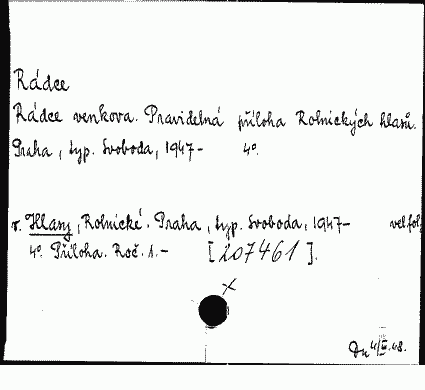 Rádce
Rádce venkova. Pravidelná příloha Rolnických hlasů.
Praha, typ. Svoboda, 1947- 4°.
v. Hlasy, Rolnické. Praha, typ. Svoboda, 1947- vel.fol,
4° Příloha. Roč. 1.- [207461].
x
Du 4/III.48.